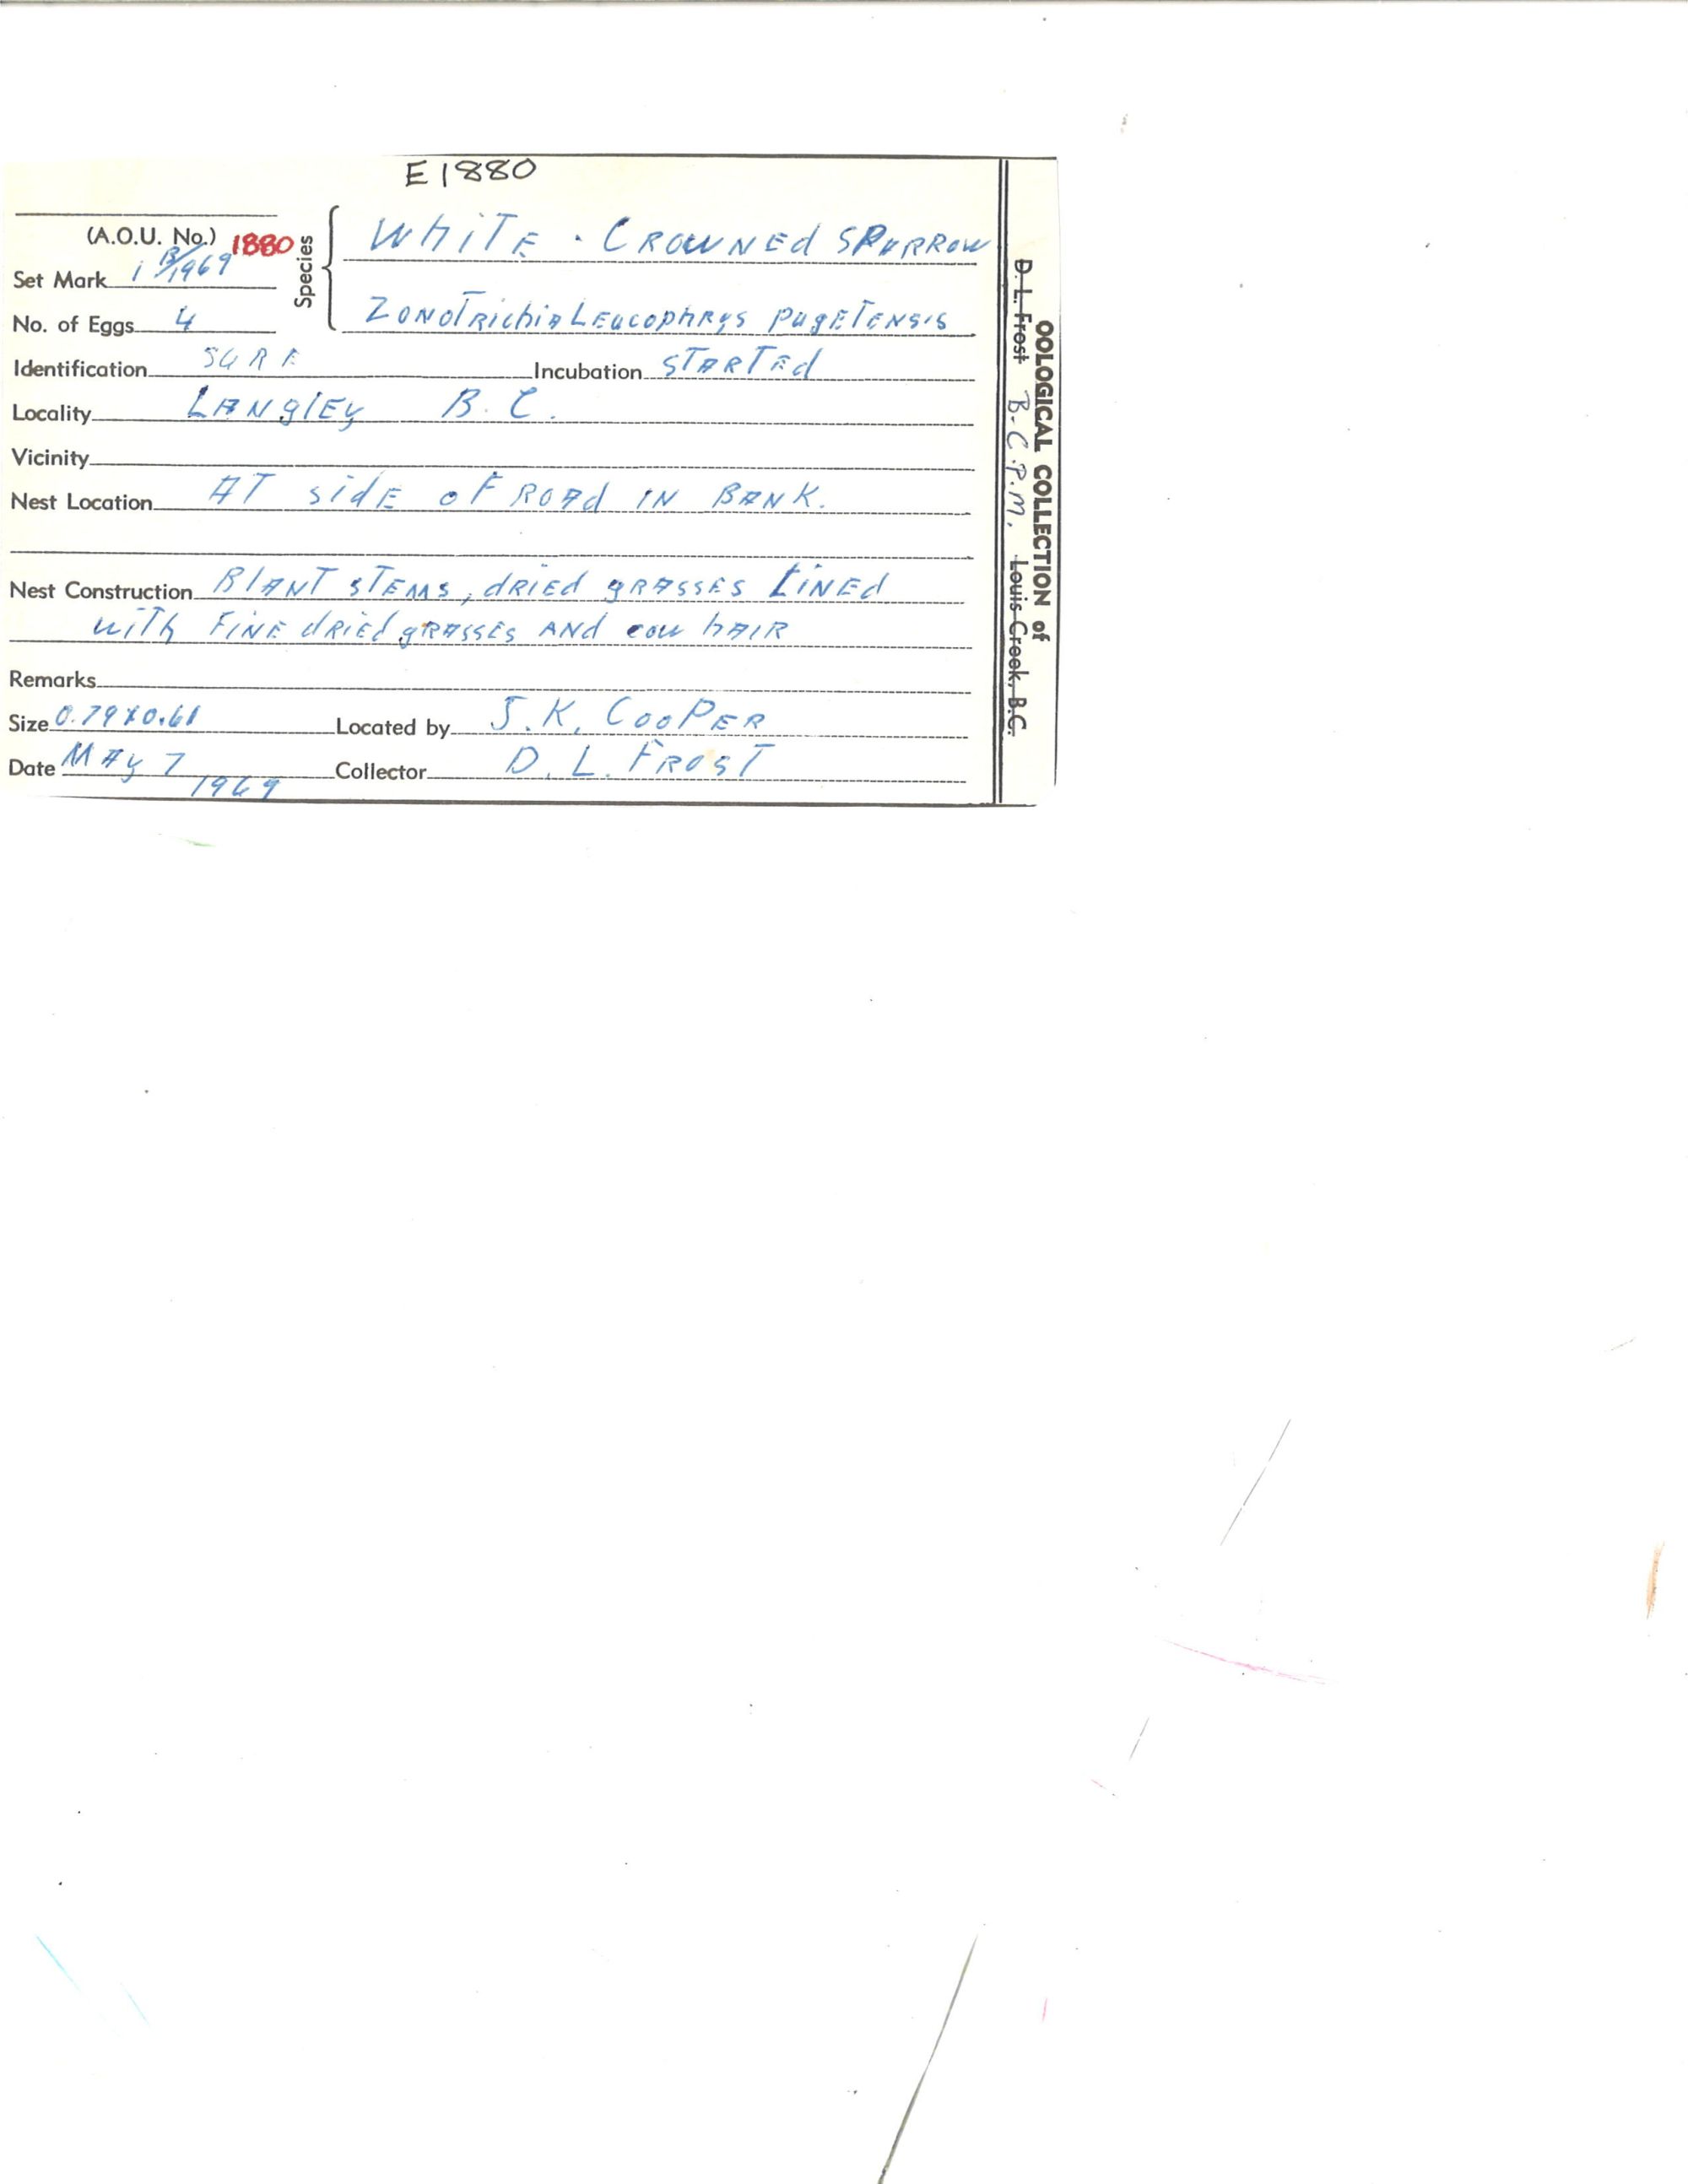 E1880
(A.O.U. No.) 1880
Species
WhiTE · CROWNEd SPARROW
Set Mark 1 B/1969
ZONOTRichiA LEucophRys pugETENsis
No. of Eggs 4
Identification SURE Incubation STARTEd
Locality LANglEy B.C.
Vicinity
Nest Location AT sidE oF ROAd IN BANK.
Nest Construction PlANT sTEMs, dRIEd gRAssEs LiNEd
wiTh FiNE dRIEd gRAssEs ANd cow hAIR
Remarks
Size 0.79x0.61 Located by J.K. CooPER
Date MAy 7 1969 Collector D.L. FROST
OOLOGICAL COLLECTION of
D. L. Frost B.C.P.M. Louis Creek, B.C.